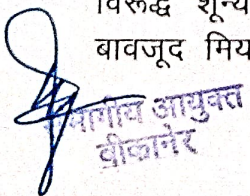 विरूद्ध शून्य
बावजूद मिय
आयुक्त
बीकानेर